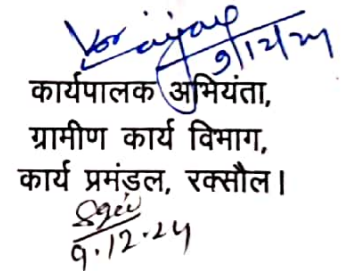 9/12/24
कार्यपालक अभियंता,
ग्रामीण कार्य विभाग,
कार्य प्रमंडल, रक्सौल।
9.12.24